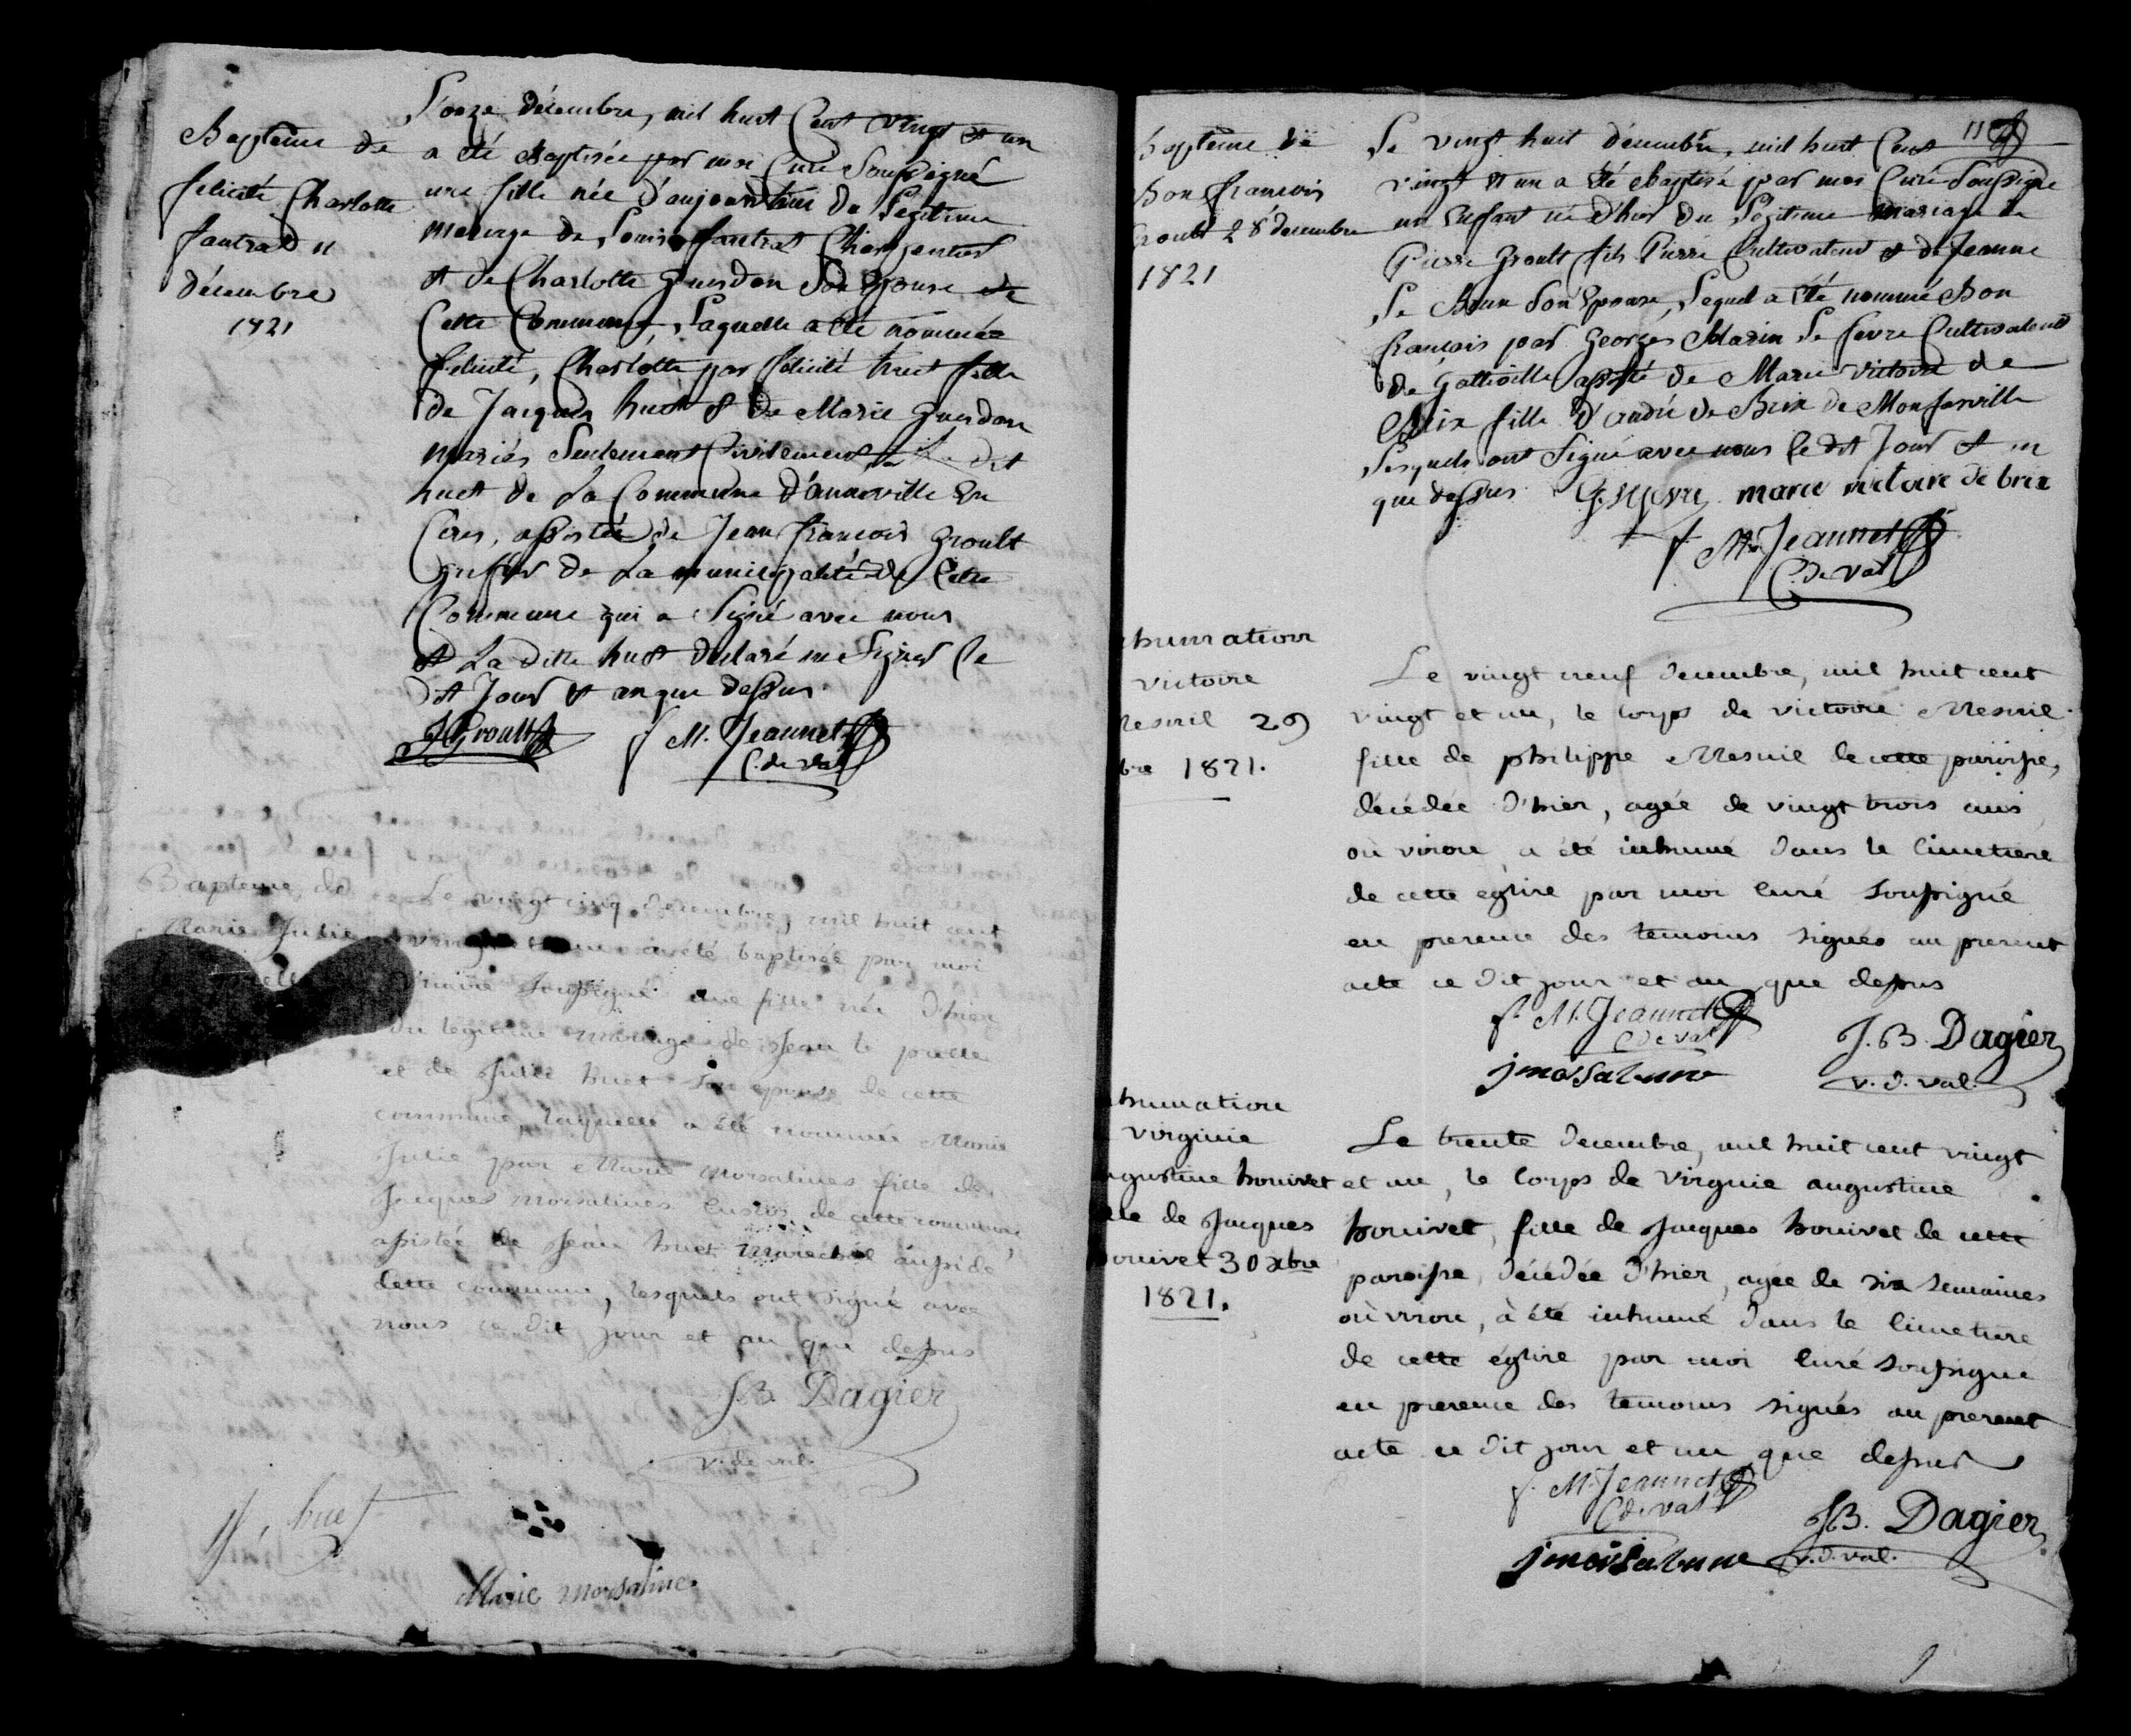 Baptême de
felicité Charlotte
fautrad 11
décembre
1821
L'onze décembre, mil huit Cent vingt et un
a été Baptisée par moi Curé Soussigné
une fille née d'aujourd'hui du Légitime
mariage de Louis fautrat Charpentier
et de Charlotte Guesdon Son Epouse de
Cette Commune, Laquelle a été nommée
félicité, Charlotte par félicité huet fille
de Jacques huet & de Marie Guesdon
mariés Seulement Civilement dit
huet de La Commune d'anneville En
Cères, assistée de Jean françois Groult
Greffier de La municipalité de Cette
Commune qui a Signé avec nous
et La ditte huet déclaré ne Signer Ce
dit Jour & an que dessus
JGroult f M. Jeannet
C. de Val
Bapteme de
Marie Julie
Le vingt cinq decembre, mil huit cent
vingt et un a été baptisée par moi
vicaire soussigné une fille née d'hier
du légitime mariage de Jean le
et de Julie huet son epouse de cette
commune, laquelle a été nommée Marie
Julie par Marie morsalines fille de
Jacques morsalines de cette commune,
assistée de Jean huet marechal aussi de
cette commune, lesquels ont signé avec
nous ce dit jour et an que dessus
J.B. Dagier
v. de val.
huet
Marie morsaline
11
baptême de
Bon francois
Groult 28 decembre
1821
Le vingt huit décembre, mil huit Cent
vingt et un a été Baptisé par moi Curé Soussigné
un Enfant né d'hier du Légitime Mariage de
Pierre Groult fils Pierre Cultivateur & de Jeanne
Le Brun Son Epouse, Lequel a été nommé Bon
françois par Georges Marin Le fevre Cultivateur
de Gatteville assisté de Marie Victoire de
Brix fille d'andré de Brix de Monfarville
Lesquels ont Signé avec nous Ce dit Jour & an
que dessus marie victoire de brix
f M. Jeannet
C. de Val
humation
victoire
Mesnil 29
bre 1821.
Le vingt neuf decembre, mil huit cent
vingt et un, le corps de victoire Mesnil
fille de philippe Mesnil de cette paroisse,
décédée d'hier, agée de vingt trois ans
où viron, a été inhumé dans le cimetiere
de cette église par moi curé soussigné
en presence des temoins signés au present
acte ce dit jour et an que dessus
f. M. Jeannet
C de Val
J.B. Dagier
v. d. val.
jmorsalune
humation
virginie
ugustine houivet
lle de Jacques
houivet 30 xbre
1821.
Le trente decembre, mil huit cent vingt
et un, le corps de virginie augustine
houivet, fille de Jacques houivet de cette
paroisse, décédée d'hier, agée de six semaines
où viron, à été inhumé dans le cimetiere
de cette église par moi curé soussigné
en presence des temoins signés au present
acte ce dit jour et an que dessus
f. M. Jeannet
C de Val
J.B. Dagier
v. d. val.
jmorsalune